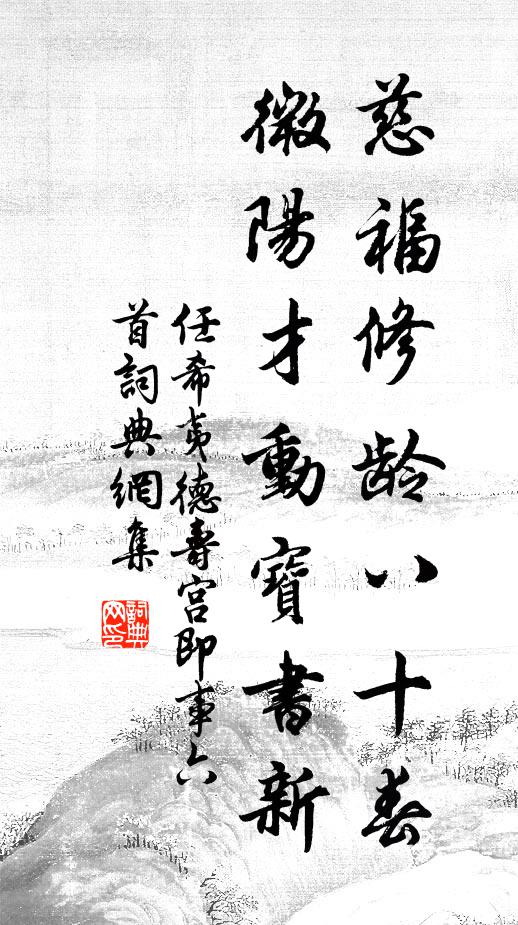 慈福修齡八十春
微陽才動寶書新
任希夷德壽宮即事六
首詞典網集
詞典
网印